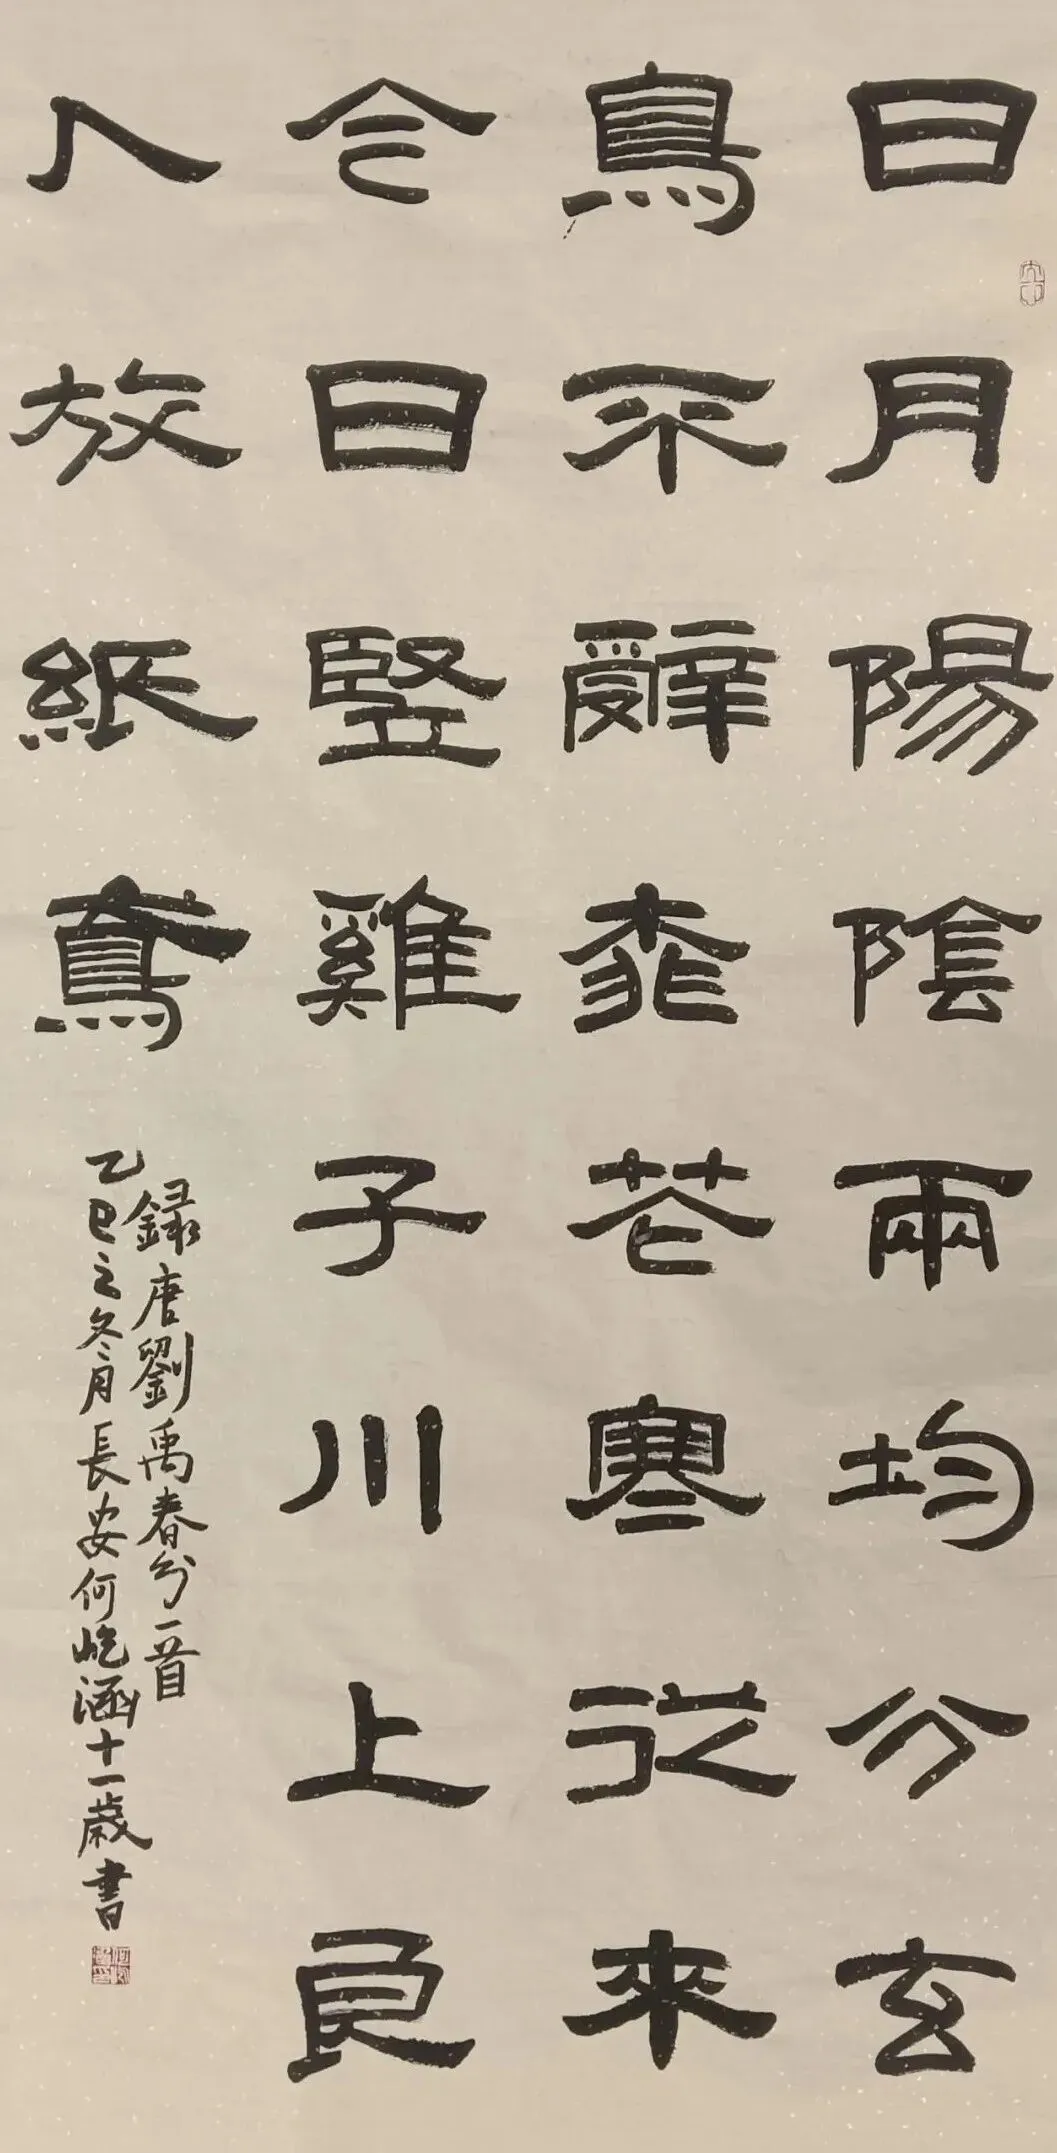 日月陽陰兩均分玄
鳥不辭桃花寒從來
今日竪雞子川上良
人放紙鳶
録唐劉禹春分一首
乙巳之冬月長安何屹涵十一歲書